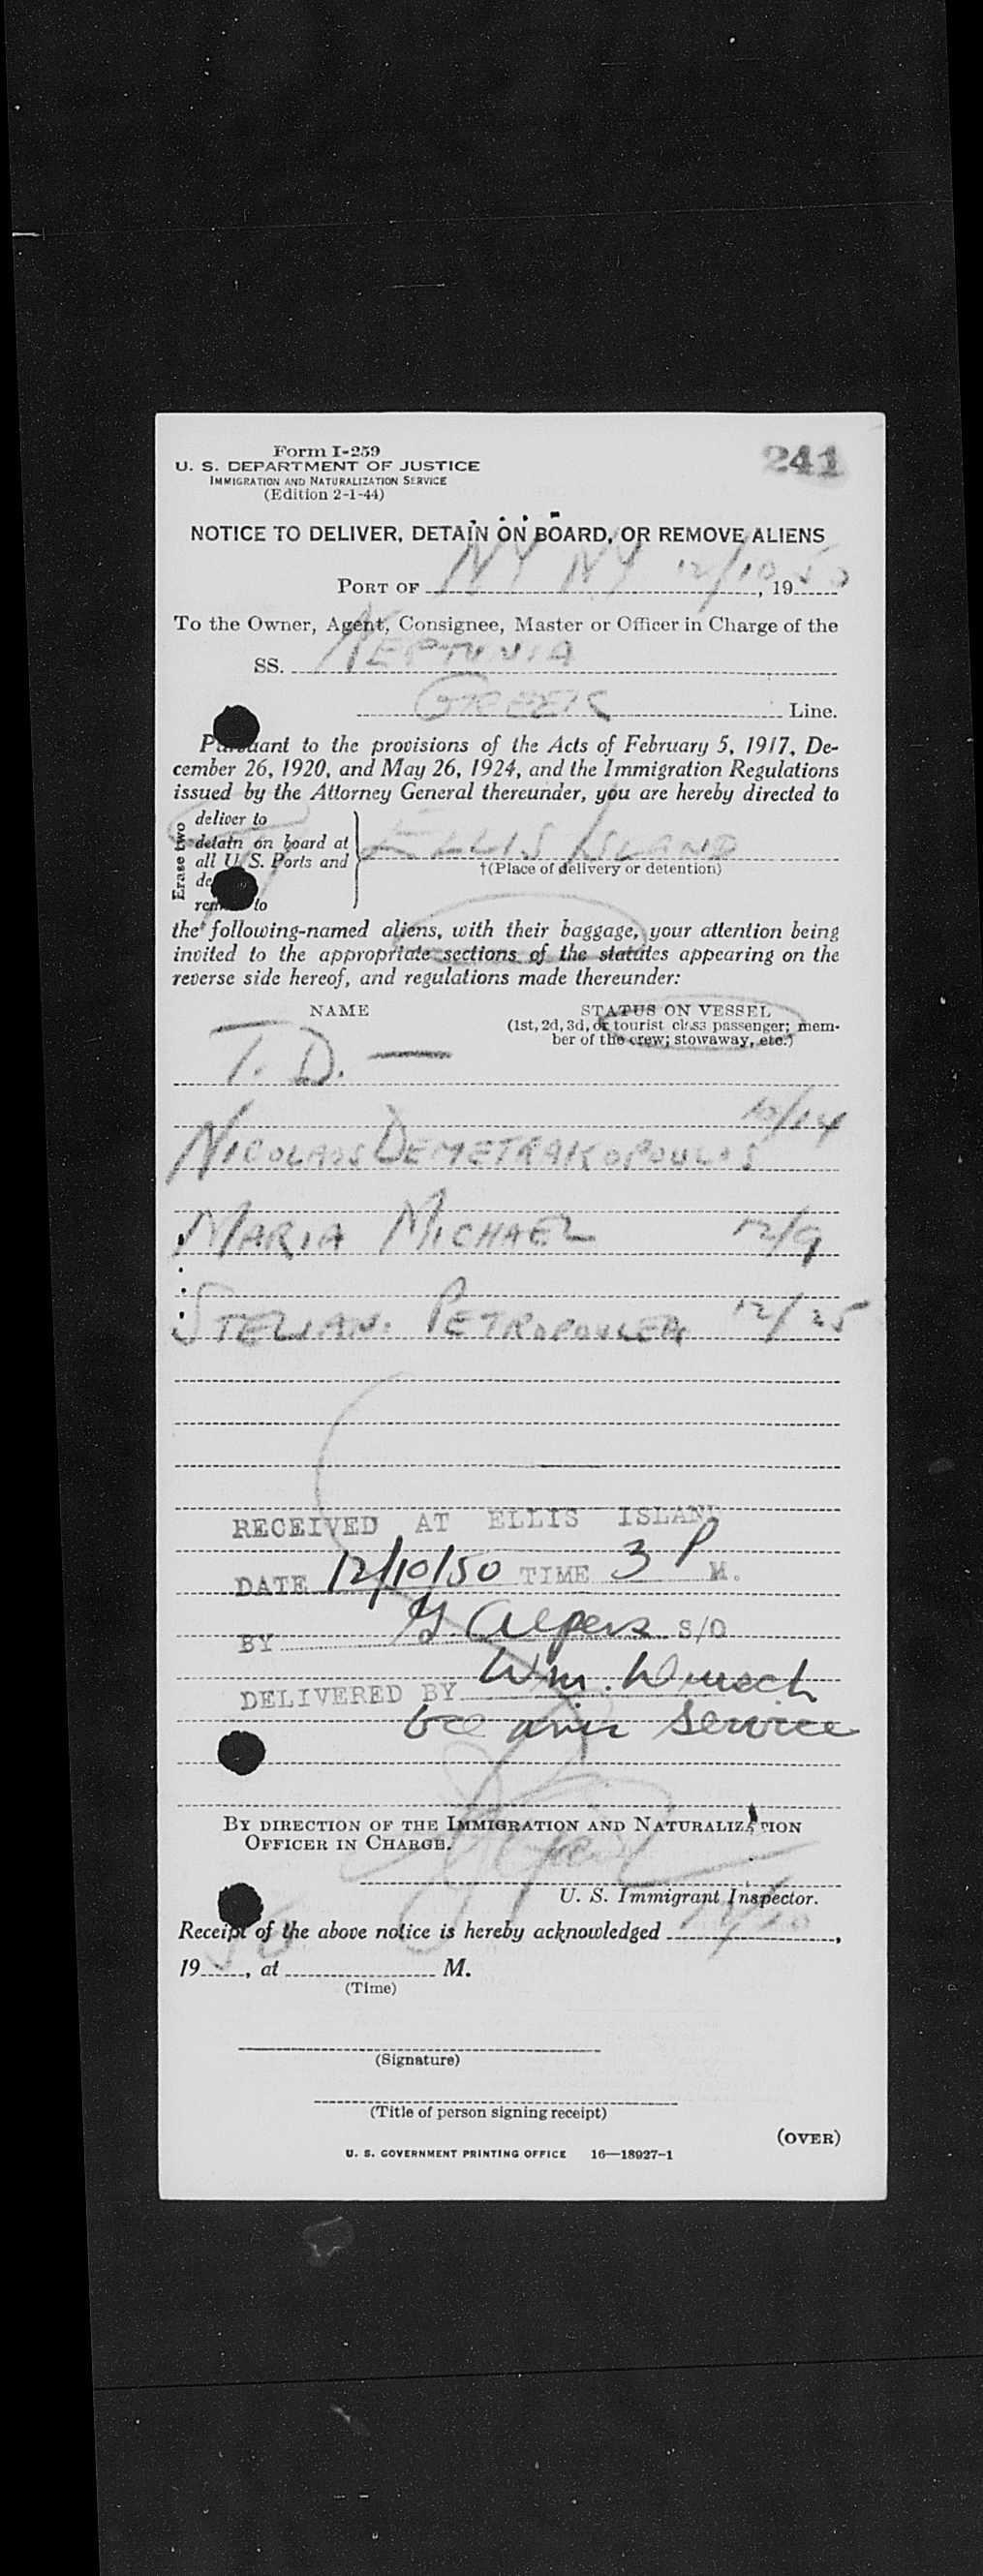 Form I-259
241
U. S. DEPARTMENT OF JUSTICE
IMMIGRATION AND NATURALIZATION SERVICE
(Edition 2-1-44)
NOTICE TO DELIVER, DETAIN ON BOARD, OR REMOVE ALIENS
PORT OF NY NY 12/10, 1950
To the Owner, Agent, Consignee, Master or Officer in Charge of the
SS. NEPTUNIA
GREEK Line.
Pursuant to the provisions of the Acts of February 5, 1917, De-
cember 26, 1920, and May 26, 1924, and the Immigration Regulations
issued by the Attorney General thereunder, you are hereby directed to
Erase two
deliver to
detain on board at
all U. S. Ports and
to
ELLIS ISLAND
†(Place of delivery or detention)
the following-named aliens, with their baggage, your attention being
invited to the appropriate sections of the statutes appearing on the
reverse side hereof, and regulations made thereunder:
NAME STATUS ON VESSEL
(1st, 2d, 3d, or tourist class passenger; mem-
ber of the crew; stowaway, etc.)
T. D. —
NICOLAOS DEMETRAKOPOULOS
MARIA MICHAEL 12/9
PETROPOULEA 12/25
RECEIVED AT ELLIS ISLAND
DATE 12/10/50 TIME 3 P M.
BY Alpers S/O
DELIVERED BY Wm.
service
BY DIRECTION OF THE IMMIGRATION AND NATURALIZATION
OFFICER IN CHARGE.
U. S. Immigrant Inspector.
Receipt of the above notice is hereby acknowledged 12/10,
1950, at M.
(Time)
(Signature)
(Title of person signing receipt)
(OVER)
U. S. GOVERNMENT PRINTING OFFICE 16—18927-1